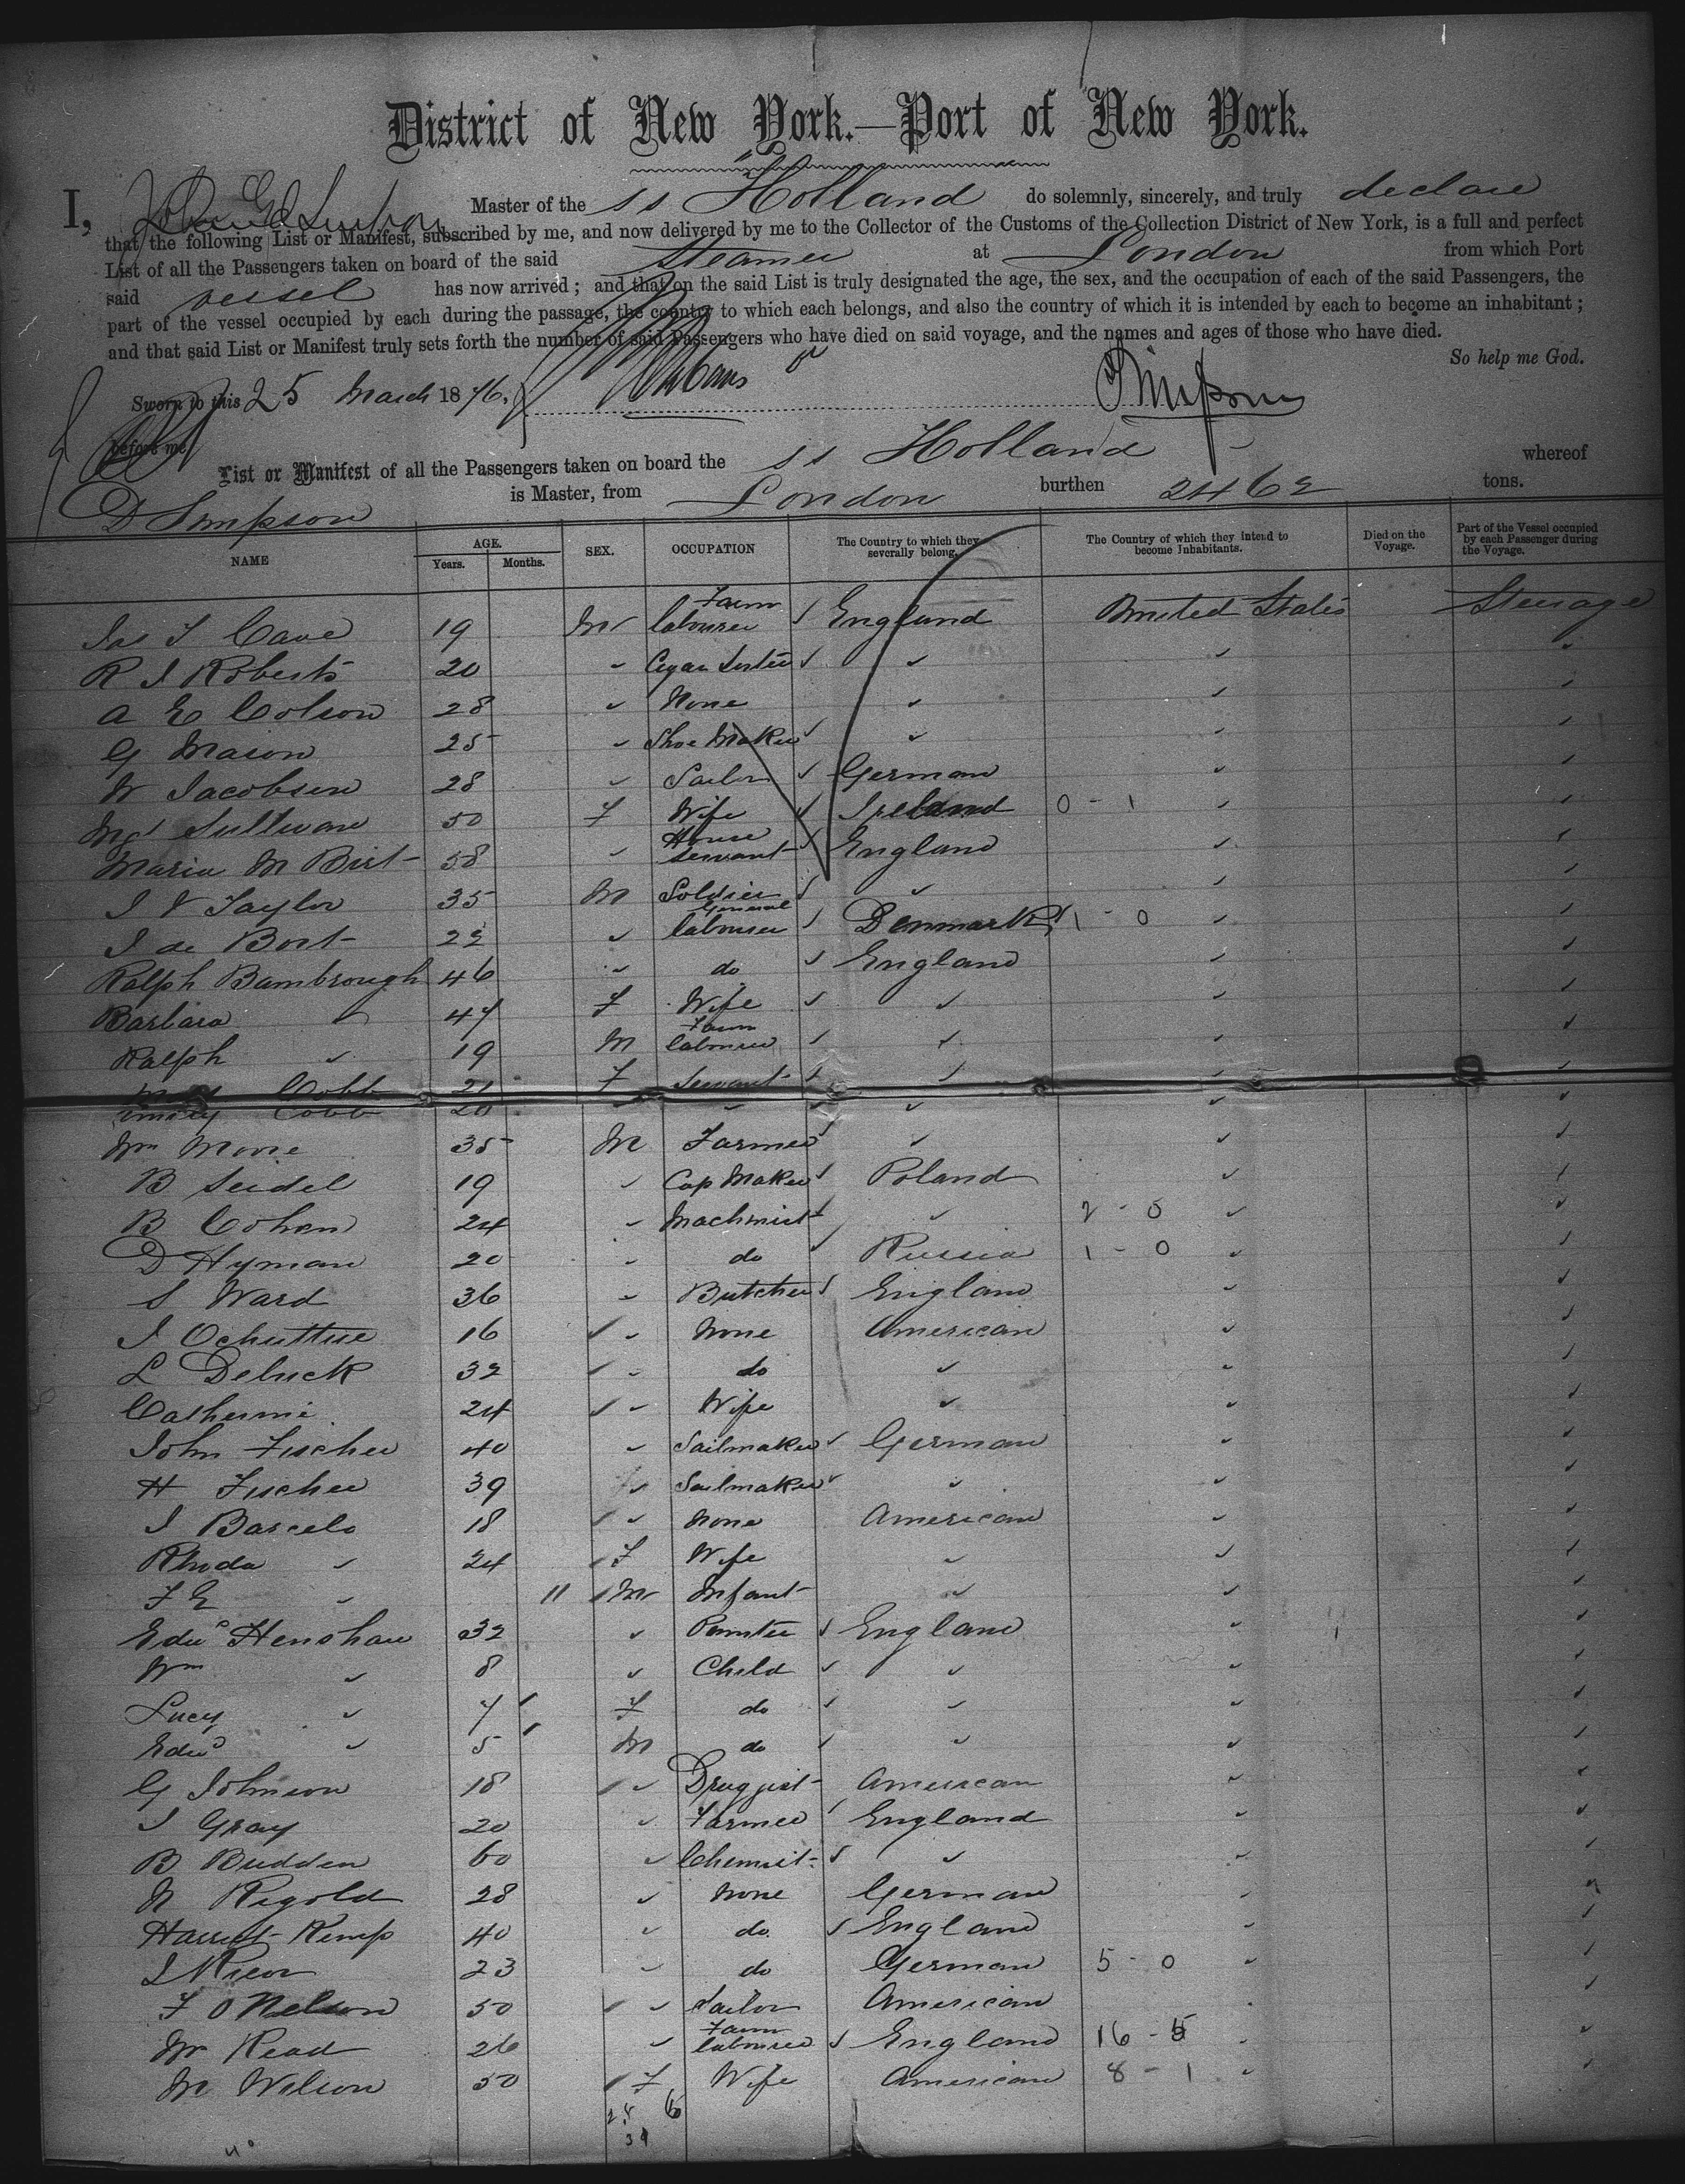 District of New York.—Port of New York.
I, Master of the ss Holland do solemnly, sincerely, and truly declare
that the following List or Manifest, subscribed by me, and now delivered by me to the Collector of the Customs of the Collection District of New York, is a full and perfect
List of all the Passengers taken on board of the said Steamer at London from which Port
said vessel has now arrived; and that on the said List is truly designated the age, the sex, and the occupation of each of the said Passengers, the
part of the vessel occupied by each during the passage, the country to which each belongs, and also the country of which it is intended by each to become an inhabitant;
and that said List or Manifest truly sets forth the number of said Passengers who have died on said voyage, and the names and ages of those who have died.
So help me God.
Sworn to this 25 March 1876. Simpson
before me
List or Manifest of all the Passengers taken on board the ss Holland whereof
D Simpson is Master, from London burthen 2462 tons.
NAME AGE. Years. Months. SEX. OCCUPATION The Country to which they severally belong. The Country of which they intend to become Inhabitants. Died on the Voyage. Part of the Vessel occupied by each Passenger during the Voyage.
Jas T Cave 19 M Farm labourer England United States Steerage
R J Roberts 20 " Cigar Sorter " " "
A E Colson 28 " None " " "
G Mason 25 " Shoe Maker " " "
W Jacobsen 28 " Sailor German " "
Mgt Sullivan 50 F Wife Ireland 0-1 " "
Maria M Birt 58 " House Servant England " "
J V Taylor 35 M Soldier " " "
J de Bort 22 " General labourer Denmark 1-0 " "
Ralph Bambrough 46 " do England " "
Barbara " 47 F Wife " " "
Ralph " 19 M Farm labourer " " "
Cobb 21 F Servant " " "
Emily Cobb 20 " " " " "
Wm Moore 35 M Farmer " " "
B Seidel 19 " Cap Maker Poland " "
B Cohen 24 " Machinist " 2-0 " "
D Hyman 20 " do Russia 1-0 " "
S Ward 36 " Butcher England " "
J Ochuttue 16 " None American " "
L Deluck 32 " do " " "
Catherine 24 " Wife " " "
John Fischer 40 " Sailmaker German " "
H Fischer 39 " Sailmaker " " "
J Barcelo 18 " None American " "
Rhoda " 24 F Wife " " "
F E " 11 M Infant " " "
Edwd Henshaw 32 " Painter England " "
Wm " 8 " Child " " "
Lucy " 7 F do " " "
Edwd " 5 M do " " "
G Johnson 18 " Druggist American " "
J Gray 20 " Farmer England " "
B Budden 60 " Chemist " " "
N Rigold 28 " None German " "
Harriet Kemp 40 " do England " "
J 23 " do German 5-0 " "
F O Nelson 50 " Sailor American " "
Wm Read 26 " Farm labourer England 16-5 " "
M Wilson 50 F Wife American 8-1 " "
6